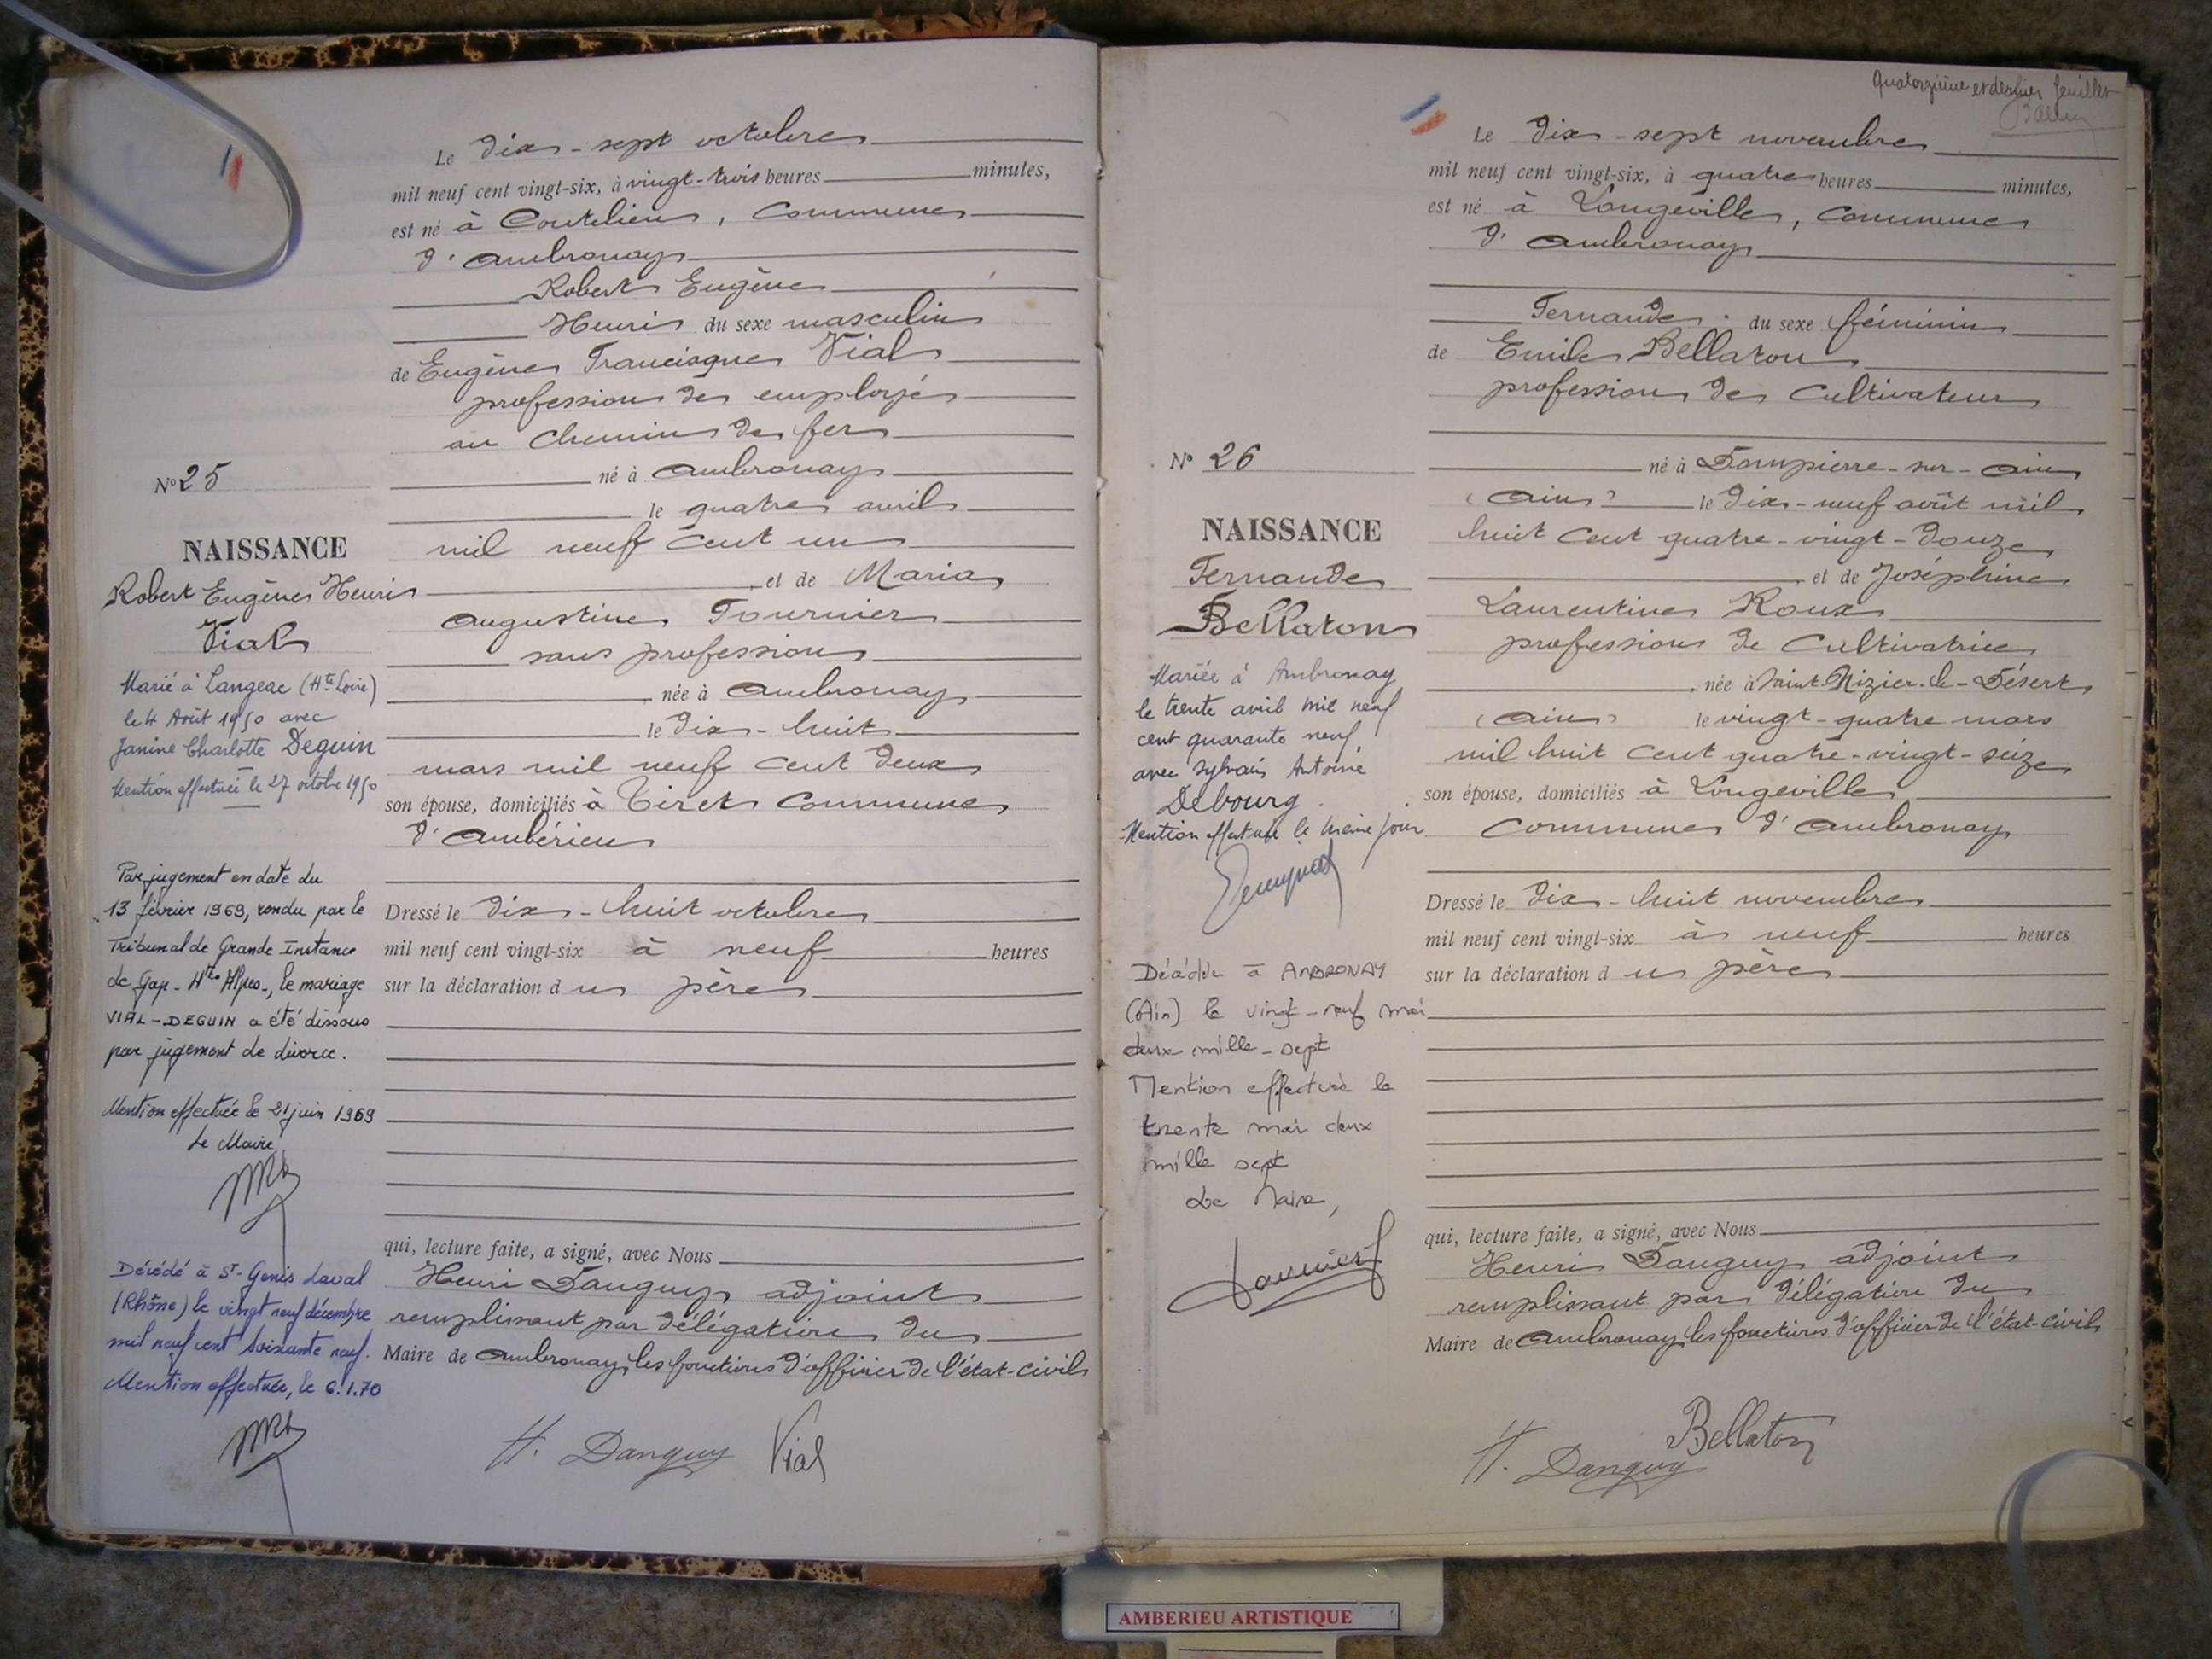 Le dix-sept octobre
mil neuf cent vingt-six, à vingt-trois heures minutes,
est né à Coutelieu, Commune
d'Ambronay
Robert Eugène
Henri du sexe masculin
de Eugène Francisque Vial
profession de employé
au Chemin de fer
né à Ambronay
le quatre avril
mil neuf cent un
et de Maria
Augustine Tournier
sans profession
née à Ambronay
le dix-huit
mars mil neuf cent deux
son épouse, domiciliés à Tiret Commune
d'Ambérieu
Dressé le dix-huit octobre
mil neuf cent vingt-six à neuf heures
sur la déclaration du père
qui, lecture faite, a signé, avec Nous
Henri Danguy adjoint
remplissant par délégation du
Maire de Ambronay les fonctions d'officier de l'état-civil
H. Danguy Vial
N° 25
NAISSANCE
Robert Eugène Henri
Vial
Marié à Langeac (Hte Loire)
le 4 Août 1950 avec
Janine Charlotte Deguin
Mention effectuée le 27 octobre 1950
Par jugement en date du
13 février 1969, rendu par le
Tribunal de Grande Instance
de Gap - Htes Alpes -, le mariage
VIAL - DEGUIN a été dissous
par jugement de divorce.
Mention effectuée le 21 juin 1969
Le Maire
Décédé à St-Genis Laval
(Rhône) le vingt neuf décembre
mil neuf cent soixante neuf.
Mention effectuée, le 6.1.70
Quatorzième et dernier feuillet
Le dix-sept novembre
mil neuf cent vingt-six, à quatre heures minutes,
est né à Longeville, Commune
d'Ambronay
Fernande du sexe féminin
de Emile Bellaton
profession de Cultivateur
né à Dompierre-sur-Ain
(Ain) le dix-neuf août mil
huit cent quatre-vingt-douze
et de Joséphine
Laurentine Roux
profession de Cultivatrice
née à Saint-Nizier-le-Désert
(Ain) le vingt-quatre mars
mil huit cent quatre-vingt-seize
son épouse, domiciliés à Longeville
Commune d'Ambronay
Dressé le dix-huit novembre
mil neuf cent vingt-six à neuf heures
sur la déclaration du père
qui, lecture faite, a signé, avec Nous
Henri Danguy adjoint
remplissant par délégation du
Maire de Ambronay les fonctions d'officier de l'état-civil
Bellaton
H. Danguy
N° 26
NAISSANCE
Fernande
Bellaton
Mariée à Ambronay
le trente avril mil neuf
cent quarante neuf
avec Sylvain Antoine
Debourg
Mention effectuée le même jour
Décédée à AMBRONAY
(Ain) le vingt-neuf mai
deux mille-sept
Mention effectuée le
trente mai deux
mille sept
Le Maire,
AMBERIEU ARTISTIQUE